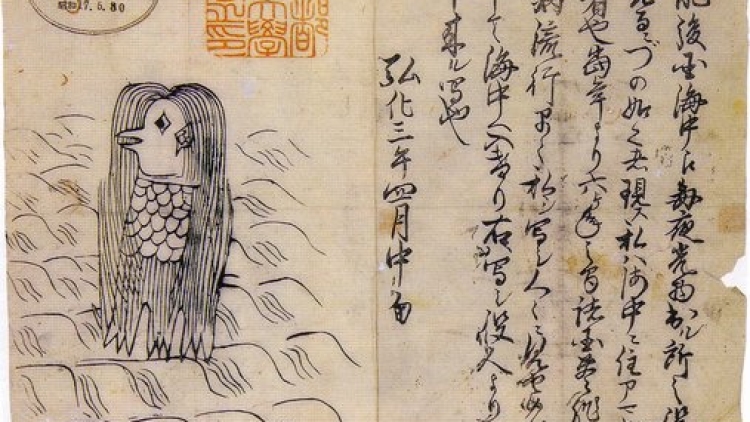 後国海中え毎夜光物出ル所之役
見るニづの如く者現ス私ハ海中ニ住アマ
者也当年より六ヶ年之間諸国豊作
病流行早々私ヲ写シ人々ニ見セ候
申て海中へ入けり右写シ役人より
申来ル写也
弘化三年四月中旬
都
大學
之印
昭和17.6.30